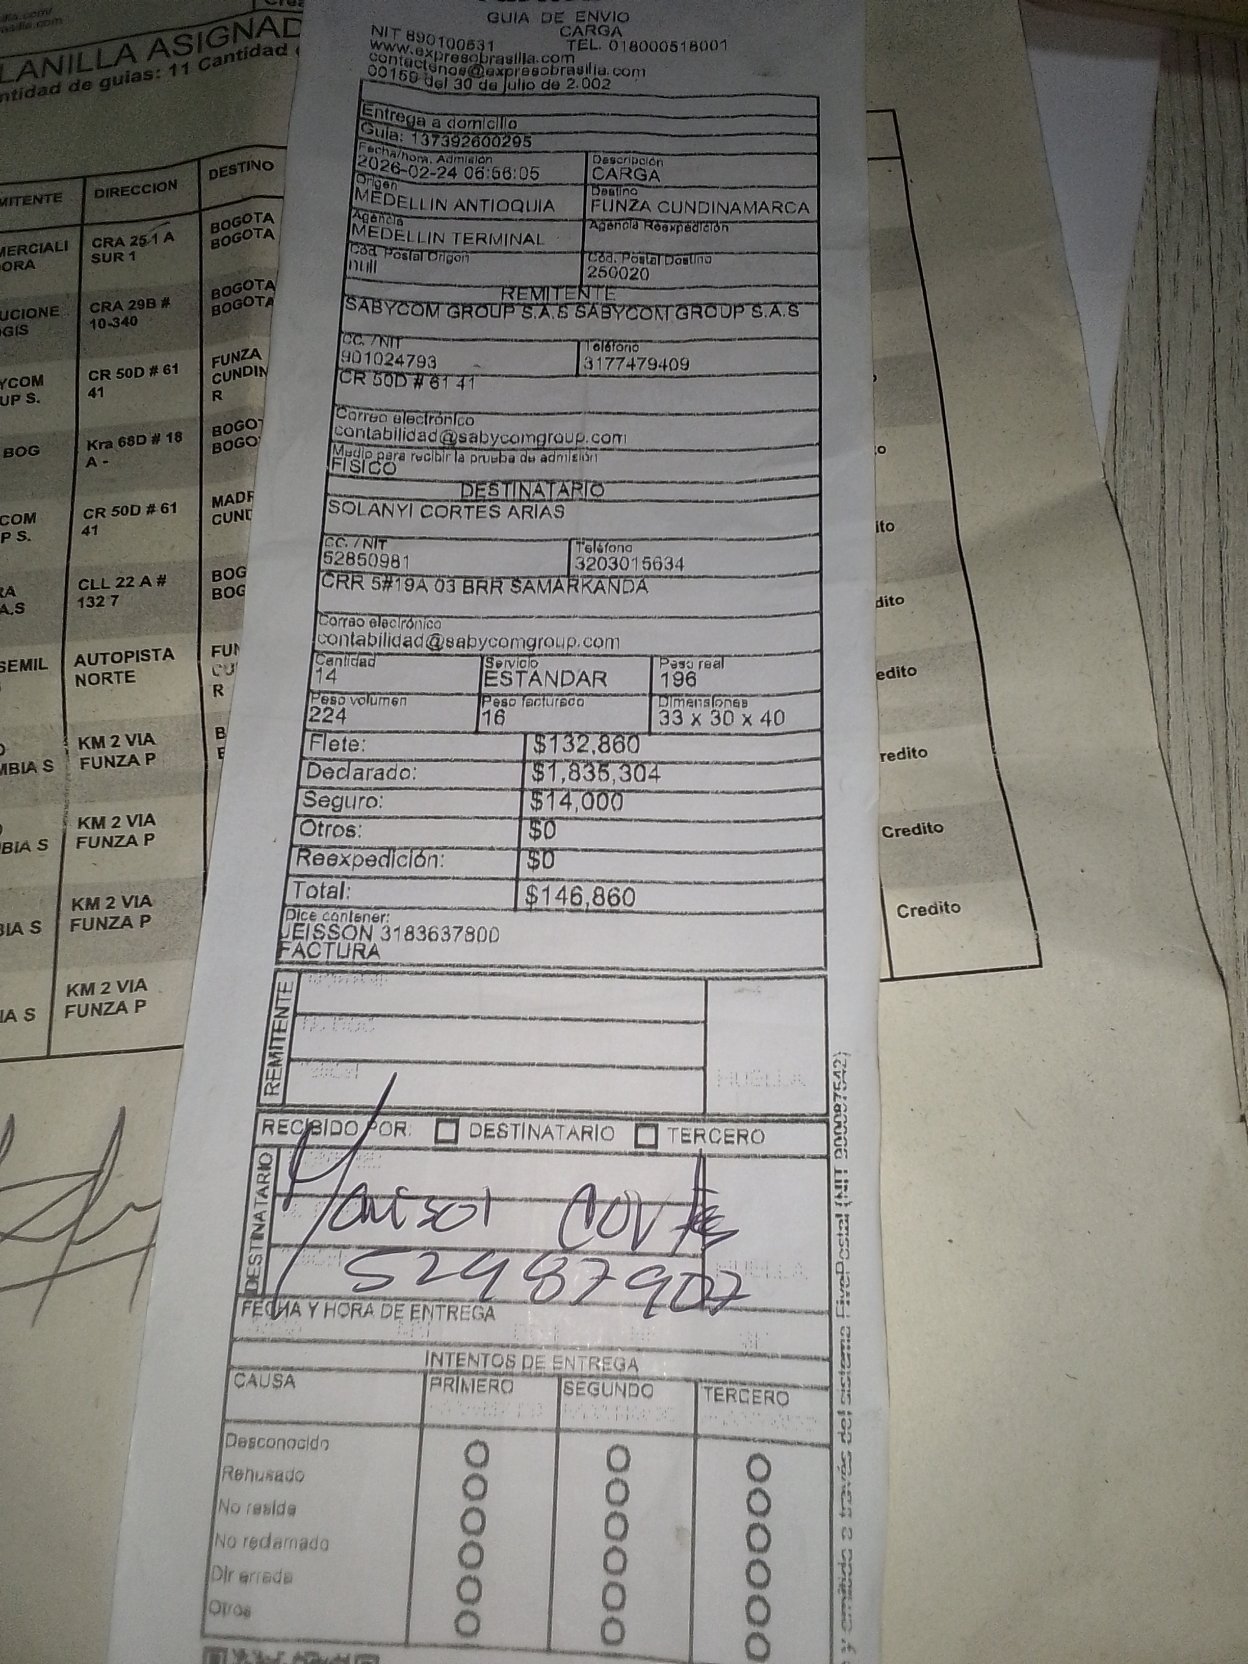 GUIA DE ENVIO
CARGA
NIT 890100531 TEL. 018000518001
www.expresobrasilia.com
contactenos@expresobrasilia.com
00159 del 30 de julio de 2.002
Entrega a domicilio
Guia: 137392600295
Fecha/hora. Admisión
2026-02-24 06:56:05
Descripción
CARGA
Origen
MEDELLIN ANTIOQUIA
Destino
FUNZA CUNDINAMARCA
Agencia
MEDELLIN TERMINAL
Agencia Reexpedición
Cód. Postal Origen
null
Cód. Postal Destino
250020
REMITENTE
SABYCOM GROUP S.A.S SABYCOM GROUP S.A.S
CC. / NIT
901024793
Teléfono
3177479409
CR 50D # 61 41
Correo electrónico
contabilidad@sabycomgroup.com
Medio para recibir la prueba de admisión
FISICO
DESTINATARIO
SOLANYI CORTES ARIAS
CC. / NIT
52850981
Teléfono
3203015634
CRR 5#19A 03 BRR SAMARKANDA
Correo electrónico
contabilidad@sabycomgroup.com
Cantidad
14
Servicio
ESTANDAR
Peso real
196
Peso volumen
224
Peso facturado
16
Dimensiones
33 x 30 x 40
Flete: $132,860
Declarado: $1,835,304
Seguro: $14,000
Otros: $0
Reexpedición: $0
Total: $146,860
Dice contener:
JEISSON 3183637800
FACTURA
REMITENTE
HUELLA
RECIBIDO POR: DESTINATARIO TERCERO
DESTINATARIO
52987907
HUELLA
FECHA Y HORA DE ENTREGA
INTENTOS DE ENTREGA
CAUSA PRIMERO SEGUNDO TERCERO
Desconocido
Rehusado
No reside
No reclamado
Dir errada
Otros
LANILLA ASIGNAD
ntidad de guias: 11 Cantidad
MITENTE DIRECCION DESTINO
MERCIALI
ORA
CRA 25 1 A
SUR 1
BOGOTA
BOGOTA
UCIONE
OGIS
CRA 29B #
10-340
BOGOTA
BOGOTA
YCOM
UP S.
CR 50D # 61
41
FUNZA
CUNDIN
R
BOG
Kra 68D # 18
A -
BOGOT
BOGO
COM
P S.
CR 50D # 61
41
MADR
CUND
RA
A.S
CLL 22 A #
132 7
BOG
BOG
SEMIL
AUTOPISTA
NORTE
FUN
CU
R
MBIA S
KM 2 VIA
FUNZA P
BIA S
KM 2 VIA
FUNZA P
BIA S
KM 2 VIA
FUNZA P
IA S
KM 2 VIA
FUNZA P
ito
dito
edito
redito
Credito
Credito